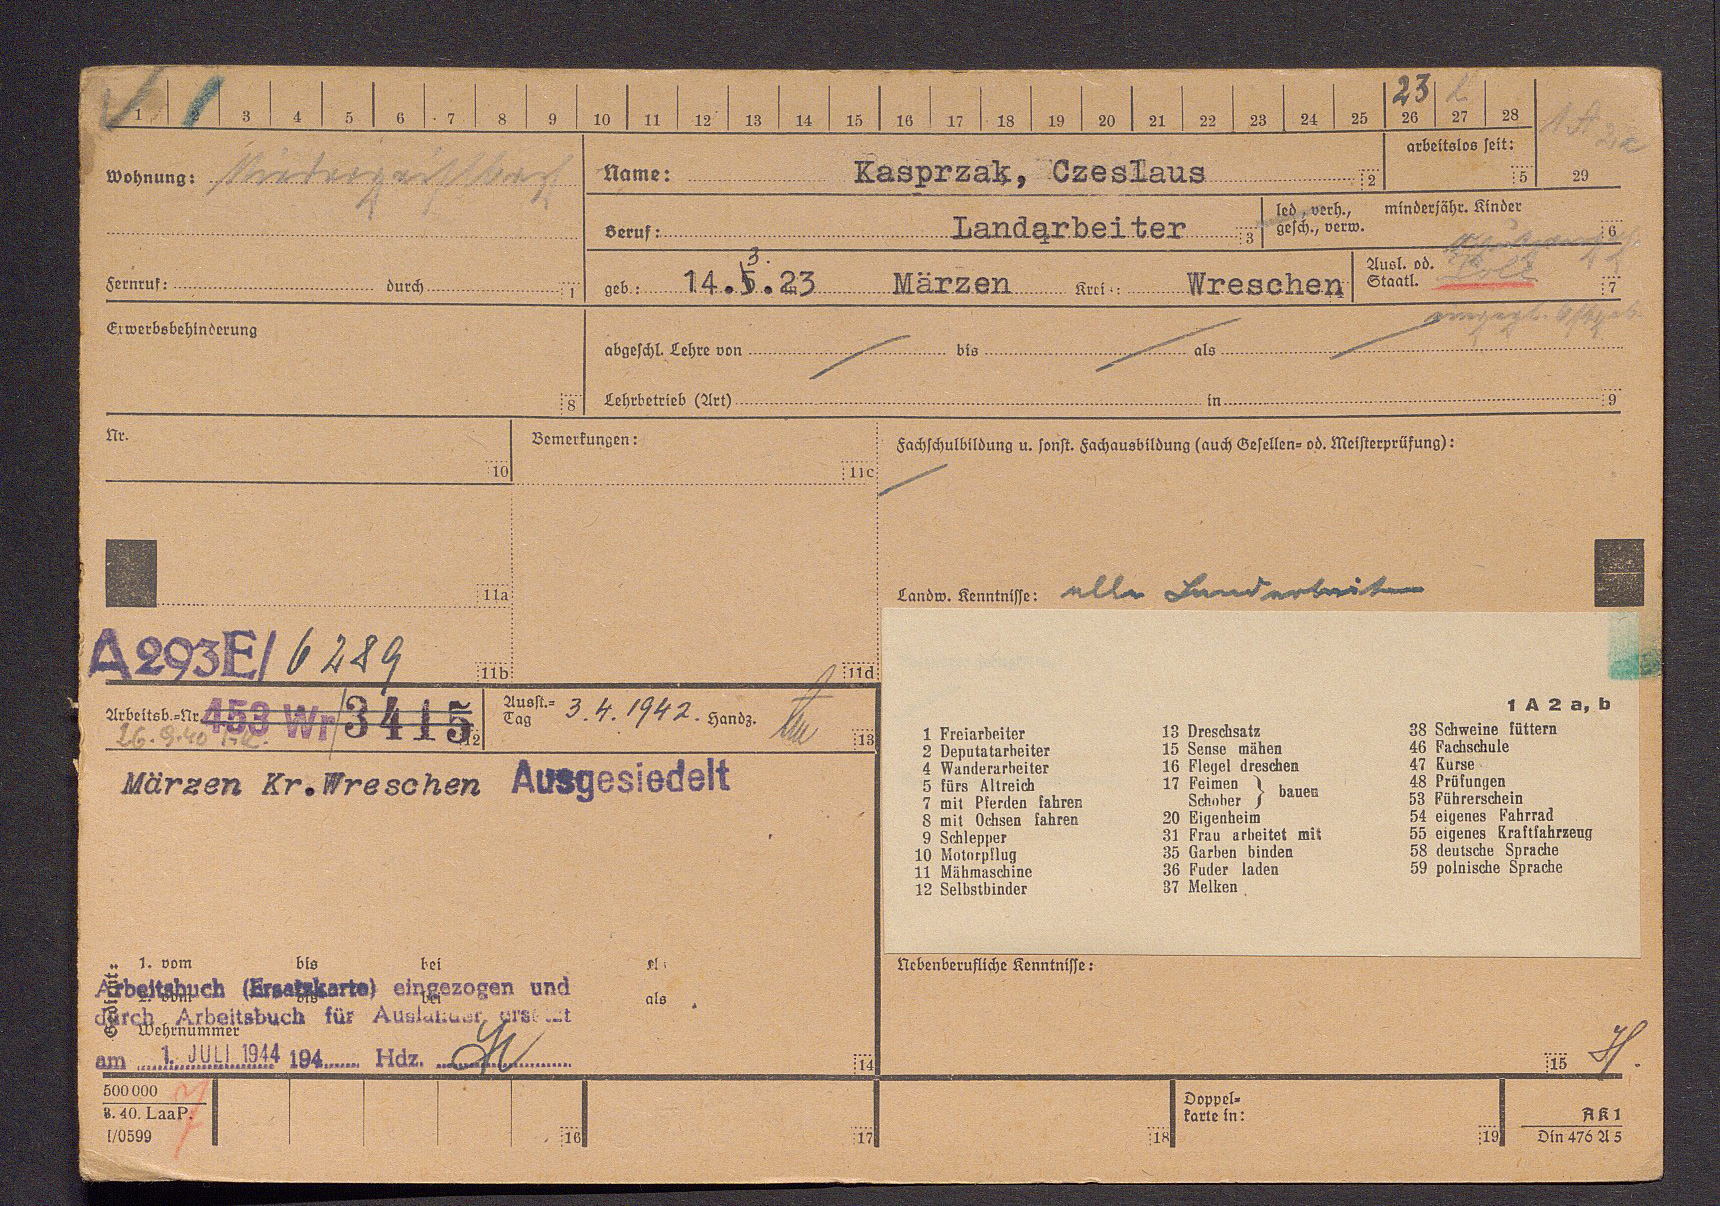 23
1 3 4 5 6 7 8 9 10 11 12 13 14 15 16 17 18 19 20 21 22 23 24 25 26 27 28
1 A 2a
29
Wohnung:
Name: Kasprzak, Czeslaus 2
arbeitslos seit: 5
Beruf: Landarbeiter 3
led., verh., gesch., verw.
minderjähr. Kinder 6
Fernruf: durch 1
geb.: 14.5.23 Märzen Kreis: Wreschen 4
3.
Ausl. od. Staatl. Pole 7
Erwerbsbehinderung 8
abgeschl. Lehre von bis als
Lehrbetrieb (Art) in 9
Nr. 10
Bemerkungen: 11c
Fachschulbildung u. sonst. Fachausbildung (auch Gesellen= od. Meisterprüfung):
11a
Landw. Kenntnisse: alle Landarbeiten
A293E/ 6289 11b
11d
Arbeitsb.=Nr. 453 Wr/3415 12
26.9.40
Ausst.=Tag 3.4.1942. Handz. 13
Märzen Kr.Wreschen Ausgesiedelt
1 A 2 a, b
1 Freiarbeiter
2 Deputatarbeiter
4 Wanderarbeiter
5 fürs Altreich
7 mit Pferden fahren
8 mit Ochsen fahren
9 Schlepper
10 Motorpflug
11 Mähmaschine
12 Selbstbinder
13 Dreschsatz
15 Sense mähen
16 Flegel dreschen
17 Feimen Schober } bauen
20 Eigenheim
31 Frau arbeitet mit
35 Garben binden
36 Fuder laden
37 Melken
38 Schweine füttern
46 Fachschule
47 Kurse
48 Prüfungen
53 Führerschein
54 eigenes Fahrrad
55 eigenes Kraftfahrzeug
58 deutsche Sprache
59 polnische Sprache
Gedient:
1. vom bis bei als
Arbeitsbuch (Ersatzkarte) eingezogen und
2. vom bis bei als
durch Arbeitsbuch für Ausländer ersetzt
Wehrnummer
am 1. JULI 1944 194 Hdz. 14
Nebenberufliche Kenntnisse:
15
500 000
8. 40. LaaP.
I/0599
16
17
18
Doppel=
karte in: 19
AK1
Din 476 A 5